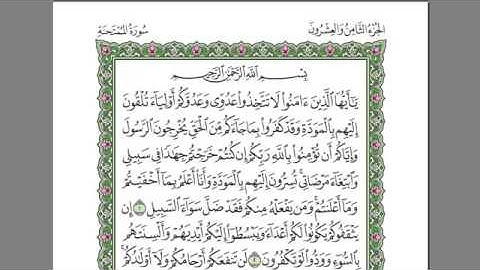 سُورَةُ المُمْتَحنَةِ الجُزْءُ الثَّامِنُ وَالعِشْرُونَ
بِسْمِ اللَّهِ الرَّحْمَٰنِ الرَّحِيمِ
يَٰٓأَيُّهَا الَّذِينَ ءَامَنُوا لَا تَتَّخِذُوا عَدُوِّى وَعَدُوَّكُمْ أَوْلِيَآءَ تُلْقُونَ
إِلَيْهِم بِالْمَوَدَّةِ وَقَدْ كَفَرُوا بِمَا جَآءَكُم مِّنَ الْحَقِّ يُخْرِجُونَ الرَّسُولَ
وَإِيَّاكُمْ أَن تُؤْمِنُوا بِاللَّهِ رَبِّكُمْ إِن كُنتُمْ خَرَجْتُمْ جِهَٰدًا فِى سَبِيلِى
وَابْتِغَآءَ مَرْضَاتِى تُسِرُّونَ إِلَيْهِم بِالْمَوَدَّةِ وَأَنَا أَعْلَمُ بِمَآ أَخْفَيْتُمْ
وَمَآ أَعْلَنتُمْ وَمَن يَفْعَلْهُ مِنكُمْ فَقَدْ ضَلَّ سَوَآءَ السَّبِيلِ ١ إِن
يَثْقَفُوكُمْ يَكُونُوا لَكُمْ أَعْدَآءً وَيَبْسُطُوٓا إِلَيْكُمْ أَيْدِيَهُمْ وَأَلْسِنَتَهُم
بِالسُّوٓءِ وَوَدُّوا لَوْ تَكْفُرُونَ ٢ لَن تَنفَعَكُمْ أَرْحَامُكُمْ وَلَآ أَوْلَٰدُكُمْ